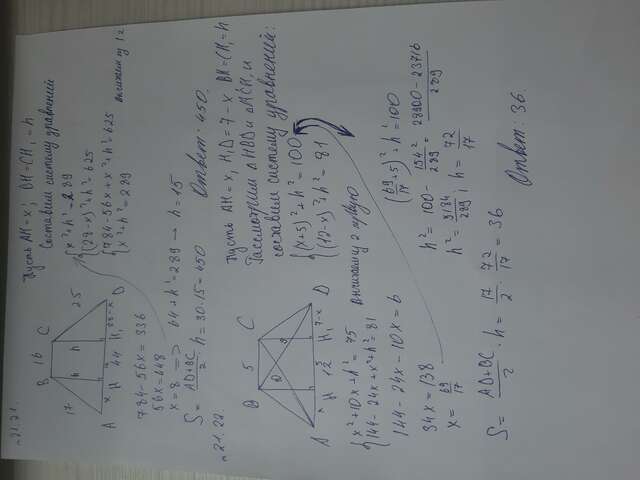 n 21.21.
B 16 C
17 h h 25
A x H 44 H₁ 28-x D
Пусть AH = x; BH = CH₁ = h
Составим систему уравнений
{x² + h² = 289
{(28-x)² + h² = 625
{784 - 56x + x² + h² = 625
{x² + h² = 289
784 - 56x = 336
56x = 448
x = 8 => 64 + h² = 289 → h = 15
S = AD+BC/2 · h = 30 · 15 = 450
Ответ: 450.
n 21.22.
B 5 C
10 9
A x H 12 H₁ 7-x D
Пусть AH = x, H₁D = 7 - x BH = CH₁ = h
Рассмотрим ΔHBD и ΔACH₁ и
составим систему уравнений:
{(x+5)² + h² = 100
{(12-x)² + h² = 81
{x² + 10x + h² = 75
{144 - 24x + x² + h² = 81
144 - 24x - 10x = 6
34x = 138
x = 69/17
(69/17 + 5)² + h² = 100
h² = 100 - 154²/289 = 28900 - 23716/289
h² = 5184/289; h = 72/17
S = AD+BC/2 · h = 17/2 · 72/17 = 36
Ответ: 36.